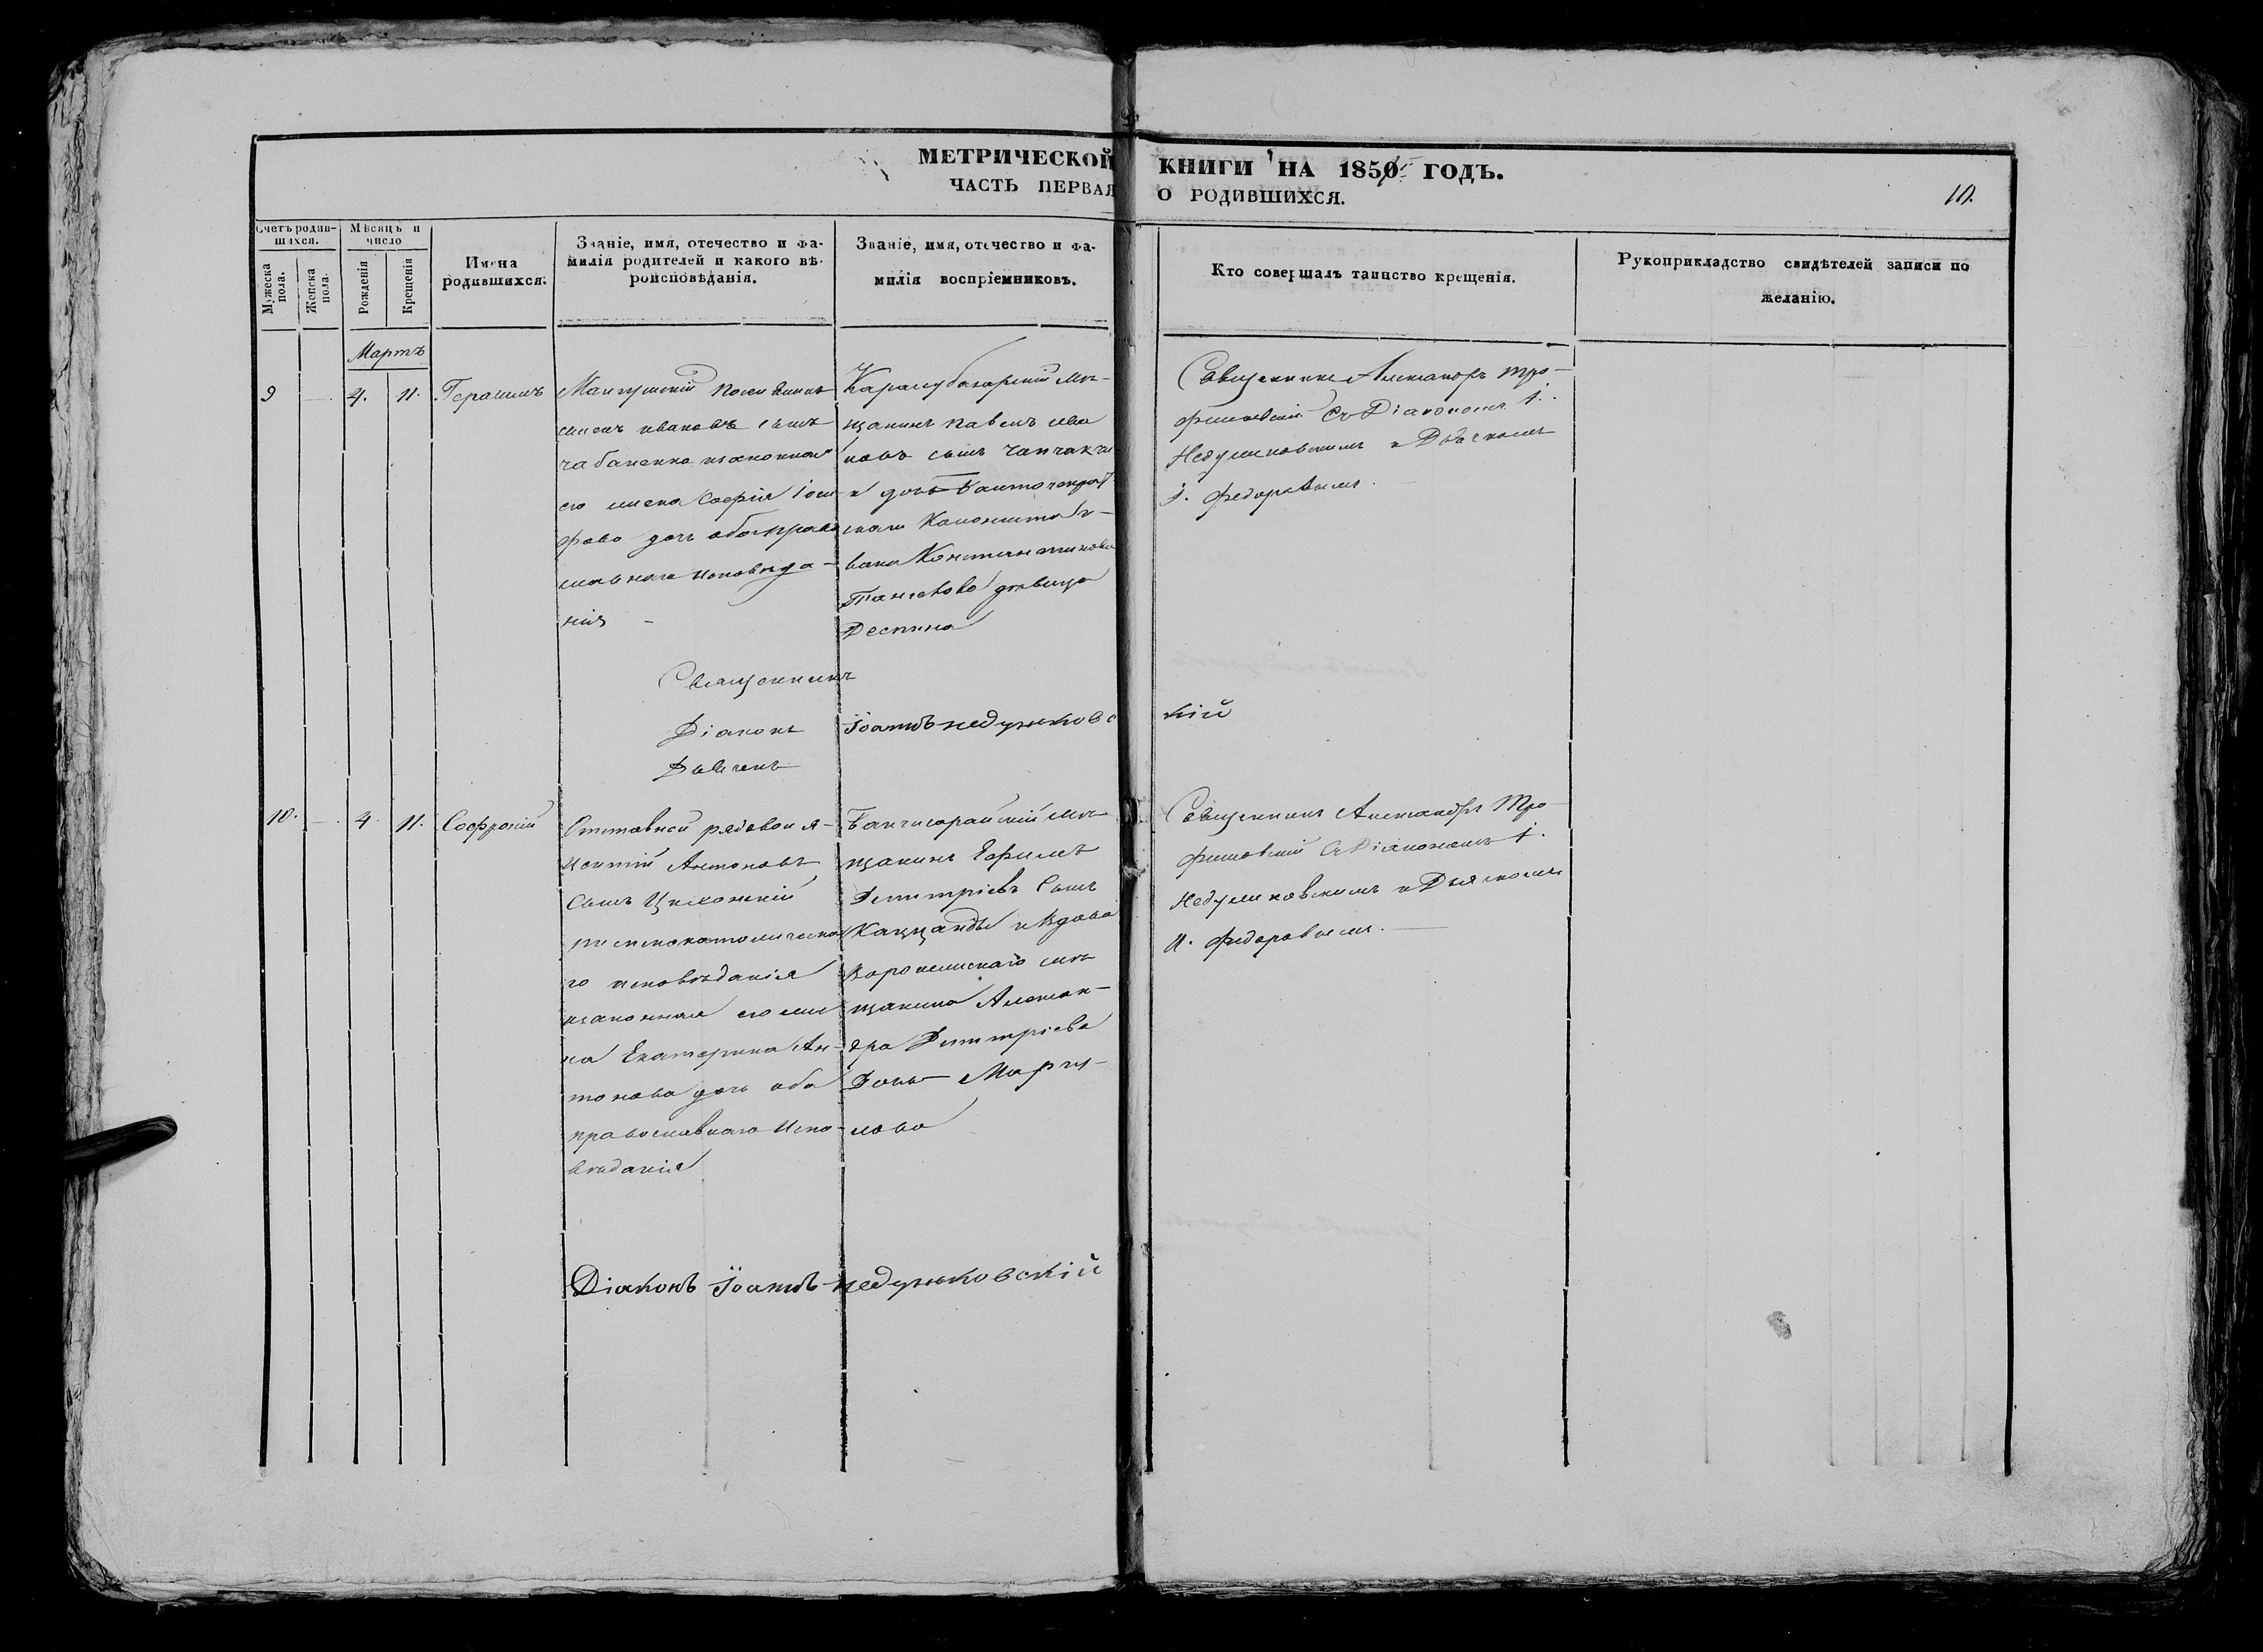 МЕТРИЧЕСКОЙ КНИГИ НА 1850 ГОДЪ.
ЧАСТЬ ПЕРВАЯ О РОДИВШИХСЯ.
10.
Счетъ родив-
шихся.
Мужеска
пола.
Женска
пола.
Мѣсяцъ и
число
Рожденія
Крещенія
Имена
родившихся.
Званіе, имя, отечество и фа-
милія родителей и какого вѣ-
роисповѣданія.
Званіе, имя, отечество и фа-
милія воспріемниковъ.
Кто совершалъ таинство крещенія.
Рукоприкладство свидѣтелей записи по
желанію.
Мартъ
9
4.
11.
Герасимъ
Мангушскій
ивановъ сынъ
чабаненко изаконная
его жена Софія
дочь обаправо
славнаго исповѣда-
нія
Карасубазарскій мѣ-
щанинъ павелъ ива
новъ сынъ
и дочь
Константинова
дѣвица
Деспина
Священникъ Александръ Тро-
фимовскій съ Діакономъ І.
Недумковскимъ и Дьячкомъ
І. Федоровымъ.
Священникъ
Діаконъ Іоаннъ недумковскій
Дьячекъ
10.
4
11.
Софроній
Отставной рядовой
Антоновъ
сынъ
римскокатолическа
го исповѣданія
изаконная его же
на Екатерина Ан-
тонова дочь оба
православнаго Испо-
вѣданія
Бахчисарайскій мѣ-
щанинъ Ефимъ
Дмитріевъ сынъ
и вдова
мѣ
щанина Алексан-
дра Дмитріева
Дочь
Священникъ Александръ Тро-
фимовскій съ Діакономъ І.
Недумковскимъ и Дьячкомъ
И. Федоровымъ.
Діаконъ Іоаннъ недумковскій